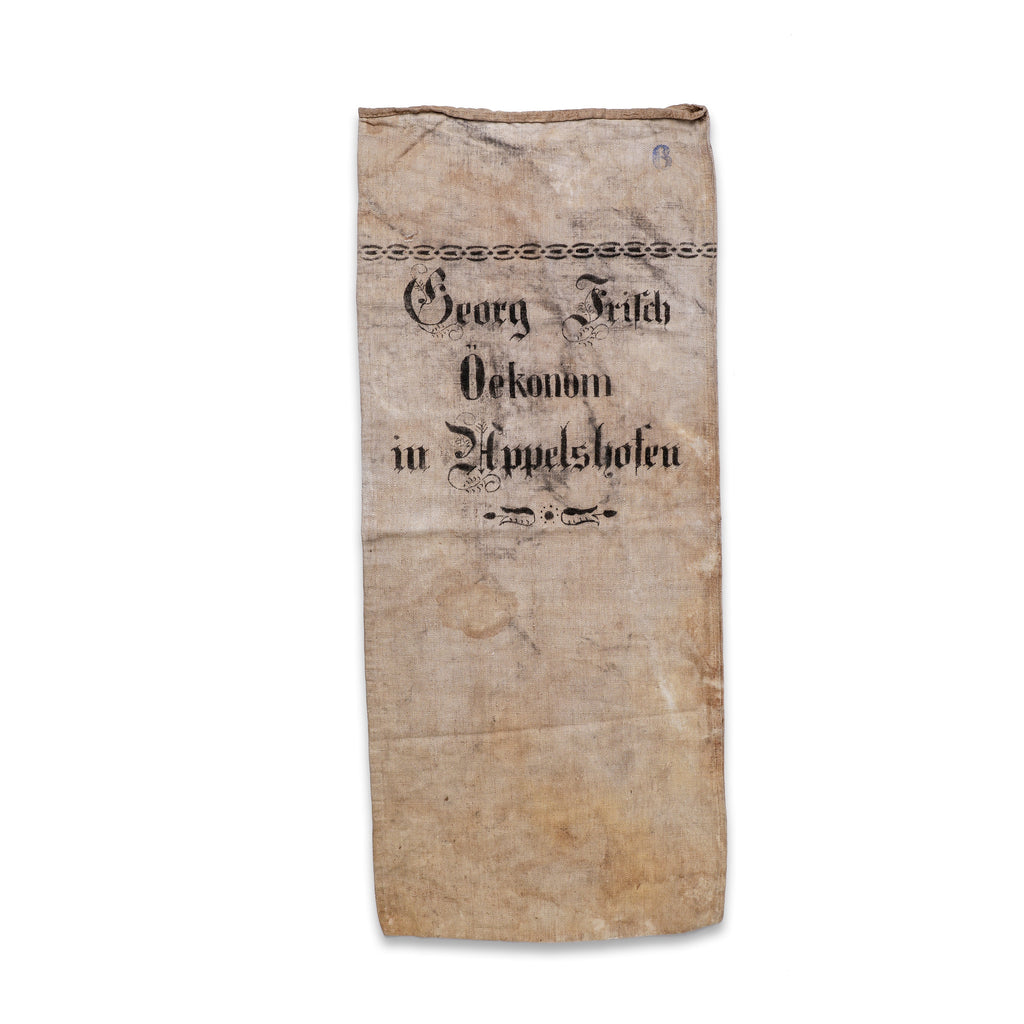 6
Georg Friſch
Öekonom
in Appelshofen